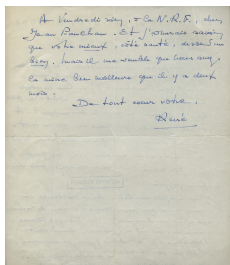 A Vendredi soir, à la N.R.F., cher
Jean Paulhan. Et j'aimerais savoir
que votre mieux, côté santé, devient un
bien. Mais il me semble que
la mine bien meilleure que il y a deux
mois.
De tout cœur votre,
René